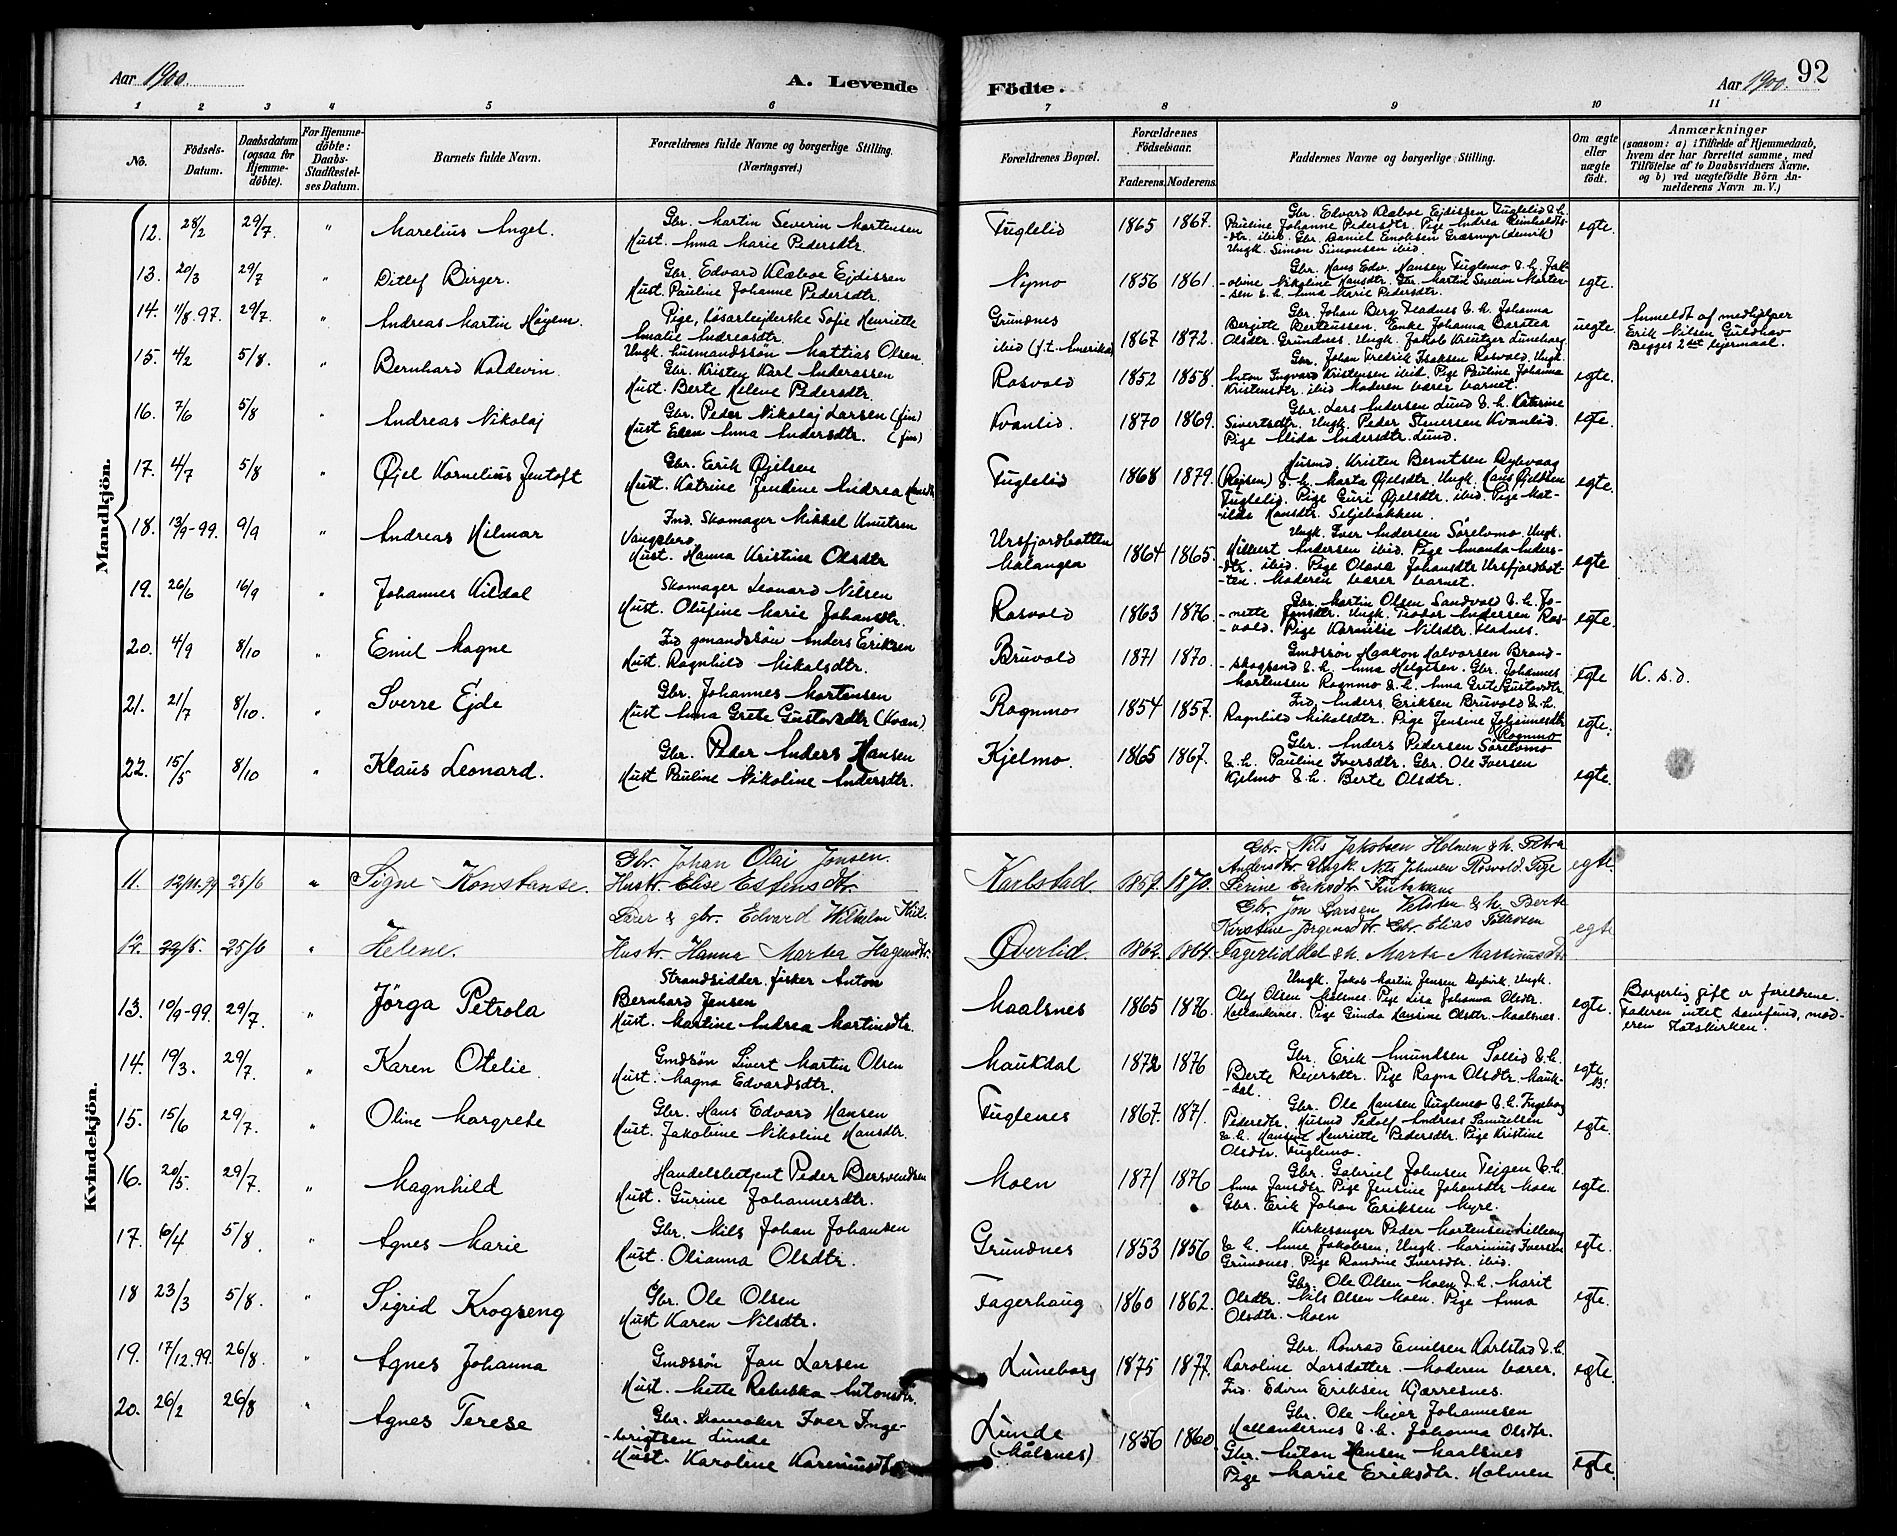 Aar 1900.
A. Levende Födte.
Aar 1900.
92
1 2 3 4 5 6 7 8 9 10 11
No.
Födsels-Datum.
Daabsdatum (ogsaa for Hjemme-döbte).
For Hjemme-döbte: Daabs-Stadfæstel-ses Datum.
Barnets fulde Navn.
Forældrenes fulde Navne og borgerlige Stilling. (Næringsvei.)
Forældrenes Bopæl.
Forældrenes Födselsaar.
Faderens. Moderens.
Faddernes Navne og borgerlige Stilling.
Om ægte eller uægte födt.
Anmærkninger
(saasom: a) i Tilfælde af Hjemmedaab,
hvem der har forrettet samme, med
Tilföielse af to Daabsvidners Navne.
og b) ved uægtefödte Börn An-
melderens Navn m. V.)
Mandkjön.
12. 28/2 29/7. " Marelius Angel. Gbr. Martin Severin Mortensen
Hust. Anna Marie Pedersdtr. Fuglelid 1865 1867. Gbr. Edvard Klæboe Ejdissen Fuglelid & h.
Pauline Johanne Pedersdtr. Pige Andrea Reinholdts-
dtr. ibid. Gbr. Daniel Enoksen Græsmyr (Lenvik)
Ungk. Simon Simonsen ibid. egte.
13. 20/3 29/7 " Ditlef Birger. Gbr. Edvard Klæboe Ejdissen
Hust. Pauline Johanne Pedersdtr. Nymo 1856 1861. Gbr. Hans Edv. Hansen Fuglemo & h. Jak-
obine Nikoline Hansdtr. Gbr. Martin Severin Morten-
sen & h. Anna Marie Pedersdtr. egte.
14. 11/8.97. 29/7. " Andreas Martin Högem. Pige, Løsarbejderske Sofie Henriette
Amalie Andreasdtr.
Ungk. husmandssön Mattias Olsen Grundnes
ibid (f.t. Amerika) 1867 1872. Gbr. Johan Berg Fladnes & h. Johanna
Bergitte Berteussen. Enke Johanna Barstea
Olsdtr. Grundnes. Ungk. Jakob Kreutzer Lüneborg. uegte Anmeldt af medhjælper
Erik Nilsen Guldhav
Begges 2det lejermaal.
15. 4/2 5/8. " Bernhard Koldevin. Gbr. Kristen Karl Anderassen
Hust. Berte Helene Pedersdtr. Rosvold 1852 1858. Gbr. Johan Fredrik Isaksen Rosvold, Ungk.
Anton Ingvard Kristensen ibid. Pige Pauline Johanna
Kristensdtr. ibid Moderen bærer barnet. egte.
16. 7/6 5/8 " Andreas Nikolaj Gbr. Peder Nikolaj Larsen (fin)
Hust Elen Anna Andersdtr. (fin) Kvanlid. 1870 1869. Gbr. Lars Andersen Lund & h. Katrine
Sivertsdtr. Ungk. Peder Stenersen Kvanlid.
Pige Alida Andersdtr. Lund. egte.
17. 4/7 5/8 " Øjel Kornelius Jentoft Gbr. Erik Øjelsen
Hust. Katrine Jendine Andrea Hansdtr Fuglelid 1868 1879. Husmd. Kristen Berntsen Rybvaag
(Rejsen) & h. Marta Øjelsdtr. Ungk. Hans Øjeldsen
Fuglelid. Pige Guri Øjelsdtr. ibid. Pige Mat-
ilde Hansdtr. Seljebakken. egte.
18. 13/9-99. 9/9 " Andreas Hilmar Ind. Skomager Mikkel Knutsen
Vangsbero
Hust. Hanna Kristine Olsdtr Ursfjordbotten
Malangen 1864 1865. Ungk. Iver Andersen Sørelvmo. Ungk.
Hilbert Andersen ibid. Pige Amanda Anders-
dtr. ibid. Pige Olava Johansdtr Ursfjordbot-
ten. Moderen bærer barnet. egte
19. 26/6 16/9 " Johannes Kildal Skomager Leonard Nilsen
Hust. Olufine Marie Johansdtr. Rosvold 1863 1876. Gbr. Martin Olsen Sandvold & h. Jo-
nette Jensdtr. Ungk. Teodor Andersen Ros-
vold. Pige Kornelie Nilsdtr. Fladnes. egte.
20. 4/9 8/10 " Emil Magne Ind gmandssön Anders Eriksen
Hust. Ragnhild Nikolsdtr. Bruvold 1871 1870. Gmdssön Haakon Halvorsen Brand-
skogsend & h. Anna Helgesen. Gbr. Johannes
Mortensen Rognmo & h. Anna Grete Gustavdtr. egte K. s. d.
21. 21/7 8/10. " Sverre Ejde Gbr. Johannes Mortensen
Hust Anna Grete Gustavsdtr (kvæn) Rognmo 1854 1857. Ind. Anders Eriksen Bruvold & h.
Ragnhild Nikolsdtr. Pige Jensine Johannesdtr
Rognmo egte.
22. 15/5 8/10 " Klaus Leonard. Gbr. Peder Anders Hansen
Hust Pauline Nikoline Andersdtr. Kjelmo. 1865 1867. Gbr. Anders Pedersen Sørelvmo
& h. Pauline Iversdtr. Gbr. Ole Iversen
Kjelmo & h. Berte Olsdtr. egte.
Kvindekjön.
11. 12/11.99 25/6 " Signe Konstanse. Gbr. Johan Olai Jonsen.
Hustr. Elise Estensdtr. Karlstad. 1859. 1870. Gbr. Nils Jakobsen Holmen & h. Petra
Andersdtr Ungk. Nils Johnsen Rosvold. Pige
Serine Eriksdtr egte.
12. 22/5. 25/6 " Helene. Lærer & gbr. Edvard Wilhelm Kiil.
Hustr. Hanna Martea Hagensdtr. Øverlid. 1862. 1864. Gbr. Jon Larsen & h. Berte
Kirstine Jørgensdtr. Gbr. Elias Tollefsen
Fagerliddal & h. Marta Martinusdtr egte
13. 10/9-99. 29/7. " Jörga Petrola Strandsidder, fisker Anton
Bernhard Jensen
Hust. Martine Andrea Martinsdtr. Maalsnes 1865 1876. Ungk. Jakob Martin Jensen Ungk.
Olaf Olsen Målnes. Pige Lisa Johanna Olsdtr.
Kollandernes. Pige Ginda Hansine Olsdtr. Maalsnes. egte. Borgerlig gift er foreldrene.
Faderen intet samfund, mod-
eren statskirken.
14. 19/3. 29/7. " Karen Otelie. Gmdsön Sivert Martin Olsen
Hust. Magna Edvardsdtr. Maukdal 1872 1876 Gbr. Erik Amundsen Sollid & h.
Berte Rejersdtr. Pige Ragna Olsdtr. Mauk-
dal. egte
15. 15/6 29/7. " Oline Margrete Gbr. Hans Edvard Hansen
Hust. Jakobine Nikoline Hansdtr. Fuglenes 1867. 1871. Gbr. Ole Hansen Fuglemo & h. Ingeborg
Pedersdtr. Husmd Sedolf Andreas Samuelsen
& h. Hansine Henriette Pedersdtr. Pige Kristine
Olsdtr. Fuglemo. egte.
16. 20/5. 29/7. " Magnhild Handelsbetjent Peder Bersvendsen
Hust. Gurine Johannesdtr. Moen 1871 1876 Gbr. Gabriel Johnsen Tejgen & h.
Anna Jansdtr. Pige Jensine Johansdtr Moen
Gbr. Erik Johan Eriksen Myre. egte.
17. 6/4 5/8. " Agnes Marie Gbr. Nils Johan Johansen
Hust. Olianna Olsdtr. Grundnes 1853 1856 Kirkesanger Peder Mortensen Lilleeng
& h. Anne Jakobsen. Ungk. Marinius Iversen
Grundnes. Pige Randine Iversdtr. ibid. egte.
18 23/3 5/8. " Sigrid Krogseng Gbr. Ole Olsen
Hust Karen Nilsdtr. Fagerhaug 1860 1862. Gbr. Ole Olsen Moen & h. Marit
Olsdtr. Nils Olsen Moen. Pige Anna
Olsdtr. Moen egte.
19. 17/12.99. 26/8. " Agnes Johanna Gmdssön Jan Larsen
Hust. Mette Rebekka Antonsdtr. Lüneborg 1875 1877. Gbr. Konrad Emilsen Karlstad & h.
Karoline Larsdatter. Moderen bærer.
Ind. Edin Eriksen Kjærresnes. egte.
20. 26/2 26/8 " Agnes Terese Gbr. skomaker Iver Inge-
brigtsen Lunde
Hust. Karoline Kareniusdtr Lunde
(Målsnes) 1856 1860 Gbr. Ole Mejer Johannesen
Kollandernes & h. Johanna Olsdtr.
Gbr. Anton Hansen Maalsnes
Pige Marie Eriksdtr. Holmen egte.